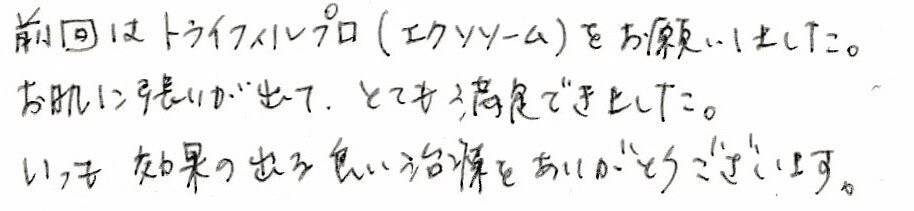 前回はトライフィルプロ(エクソソーム)をお願いしました。
お肌に張りが出て、とても満足できました。
いつも効果の出る良い治療をありがとうございます。